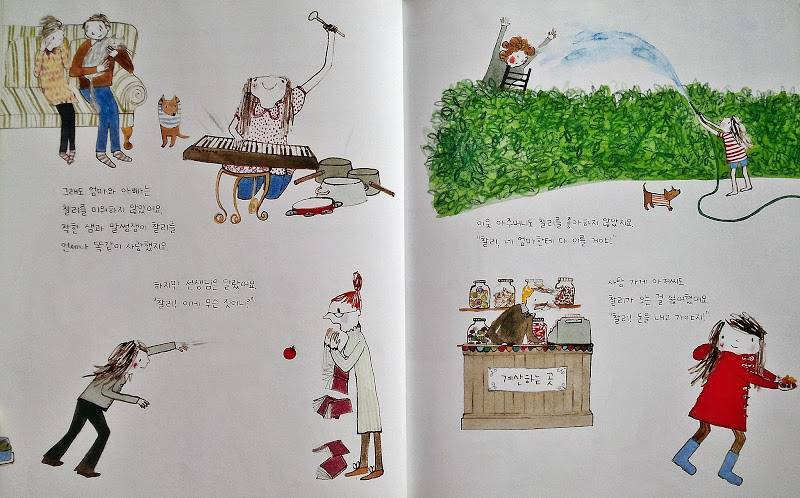 그래도 엄마와 아빠는
찰리를 미워하지 않았어요.
착한 샘과 말썽쟁이 찰리를
언제나 똑같이 사랑했지요.
하지만 선생님은 달랐어요.
"찰리! 이게 무슨 짓이니?"
이웃 아주머니도 찰리를 좋아하지 않았지요.
"찰리, 네 엄마한테 다 이를 거야!"
사탕 가게 아저씨도
찰리가 오는 걸 싫어했어요.
"찰리! 돈을 내고 가야지!"
계산하는 곳